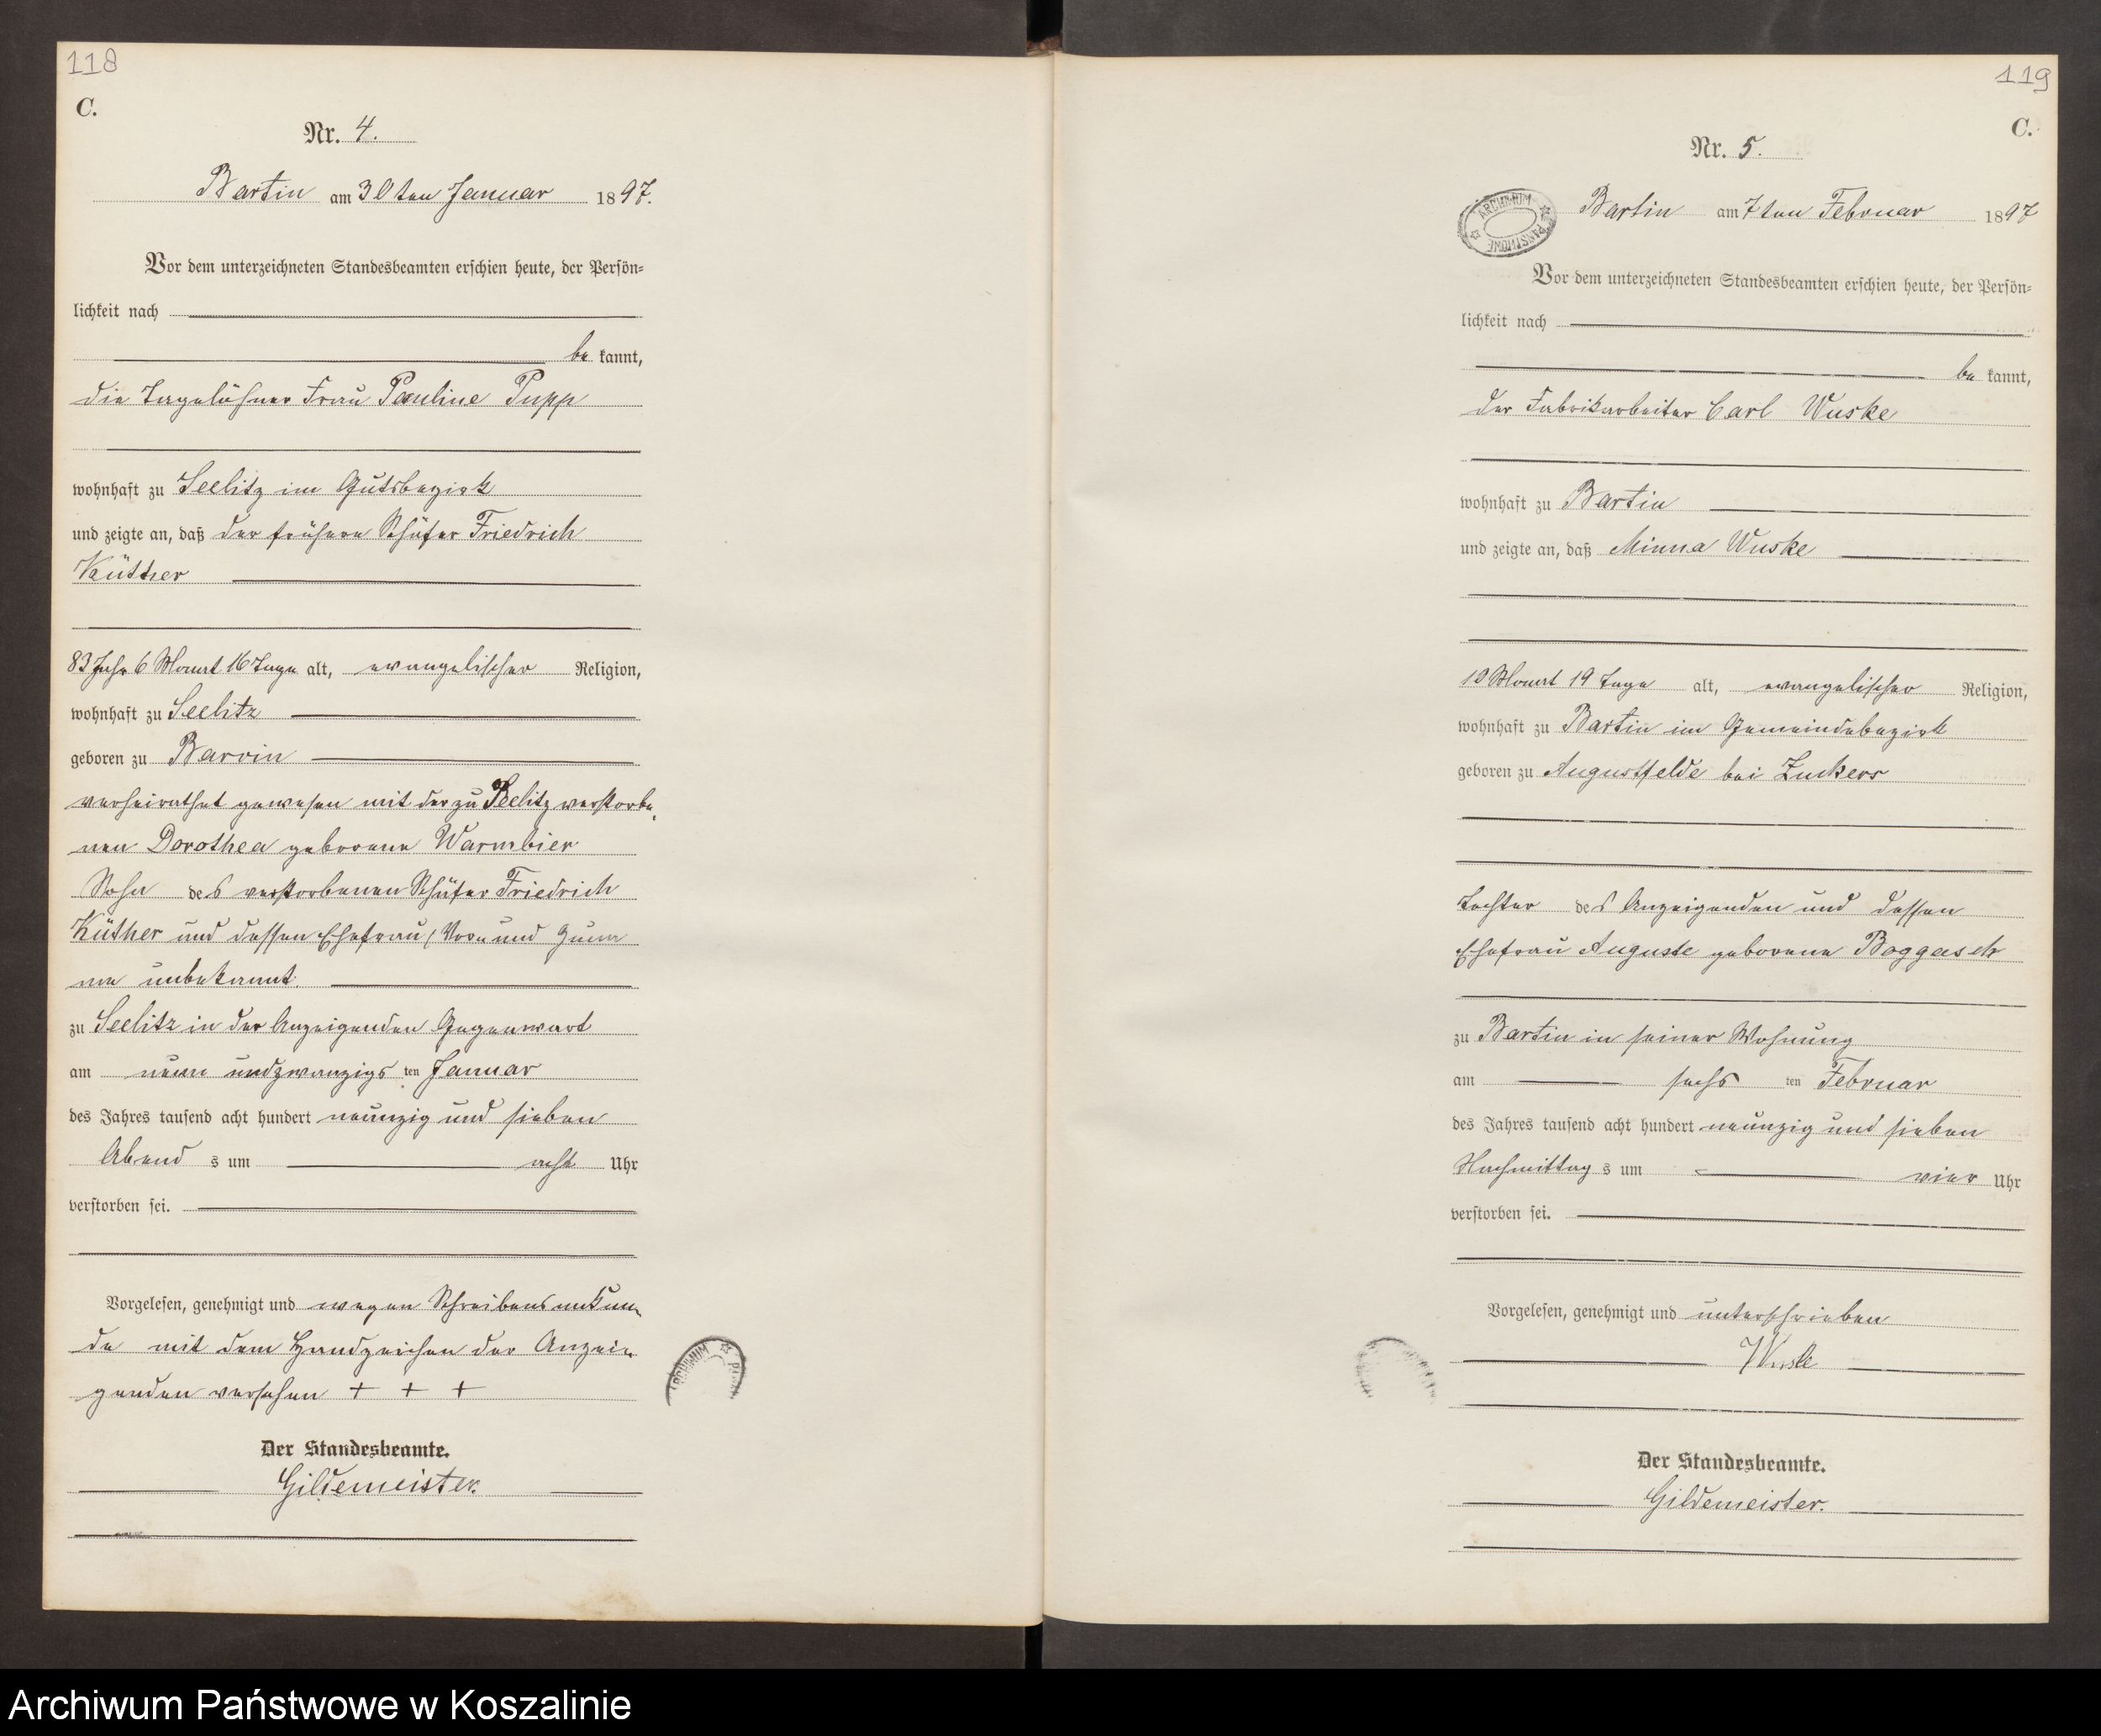 118
C.
Nr. 4.
Bartin am 30ten Januar 1897.
Vor dem unterzeichneten Standesbeamten erschien heute, der Persön-
lichkeit nach
be kannt,
die Tagelöhner Frau Pauline Pupp
wohnhaft zu Seelitz im Gutsbezirk
und zeigte an, daß der frühere Schäfer Friedrich
Küther
83 Jahr 6 Monat 16 Tage alt, evangelischer Religion,
wohnhaft zu Seelitz
geboren zu Barvin
verheirathet gewesen mit der zu Seelitz verstorbe-
nen Dorothea geborene Warmbier
Sohn des verstorbenen Schäfer Friedrich
Küther und dessen Ehefrau, Vor- und Zuna-
me unbekannt.
zu Seelitz in der Anzeigenden Gegenwart
am neun und zwanzigs ten Januar
des Jahres tausend acht hundert neunzig und sieben
Abend s um acht Uhr
verstorben sei.
Vorgelesen, genehmigt und wegen Schreibensunkun-
de mit dem Handzeichen der Anzei-
genden versehen + + +
Der Standesbeamte.
Gildemeister.
119
C.
Nr. 5.
ARCHIWUM PAŃSTWOWE
Bartin am 7ten Februar 1897
Vor dem unterzeichneten Standesbeamten erschien heute, der Persön-
lichkeit nach
be kannt,
der Fabrikarbeiter Carl Wuske
wohnhaft zu Bartin
und zeigte an, daß Minna Wuske
10 Monat 19 Tage alt, evangelischer Religion,
wohnhaft zu Bartin im Gemeindebezirk
geboren zu Augustfelde bei Zuckers
Tochter des Anzeigenden und dessen
Ehefrau Auguste geborene Boggasch
zu Bartin in seiner Wohnung
am sechs ten Februar
des Jahres tausend acht hundert neunzig und sieben
Nachmittag s um vier Uhr
verstorben sei.
Vorgelesen, genehmigt und unterschrieben
Wuske
Der Standesbeamte.
Gildemeister.
Archiwum Państwowe w Koszalinie